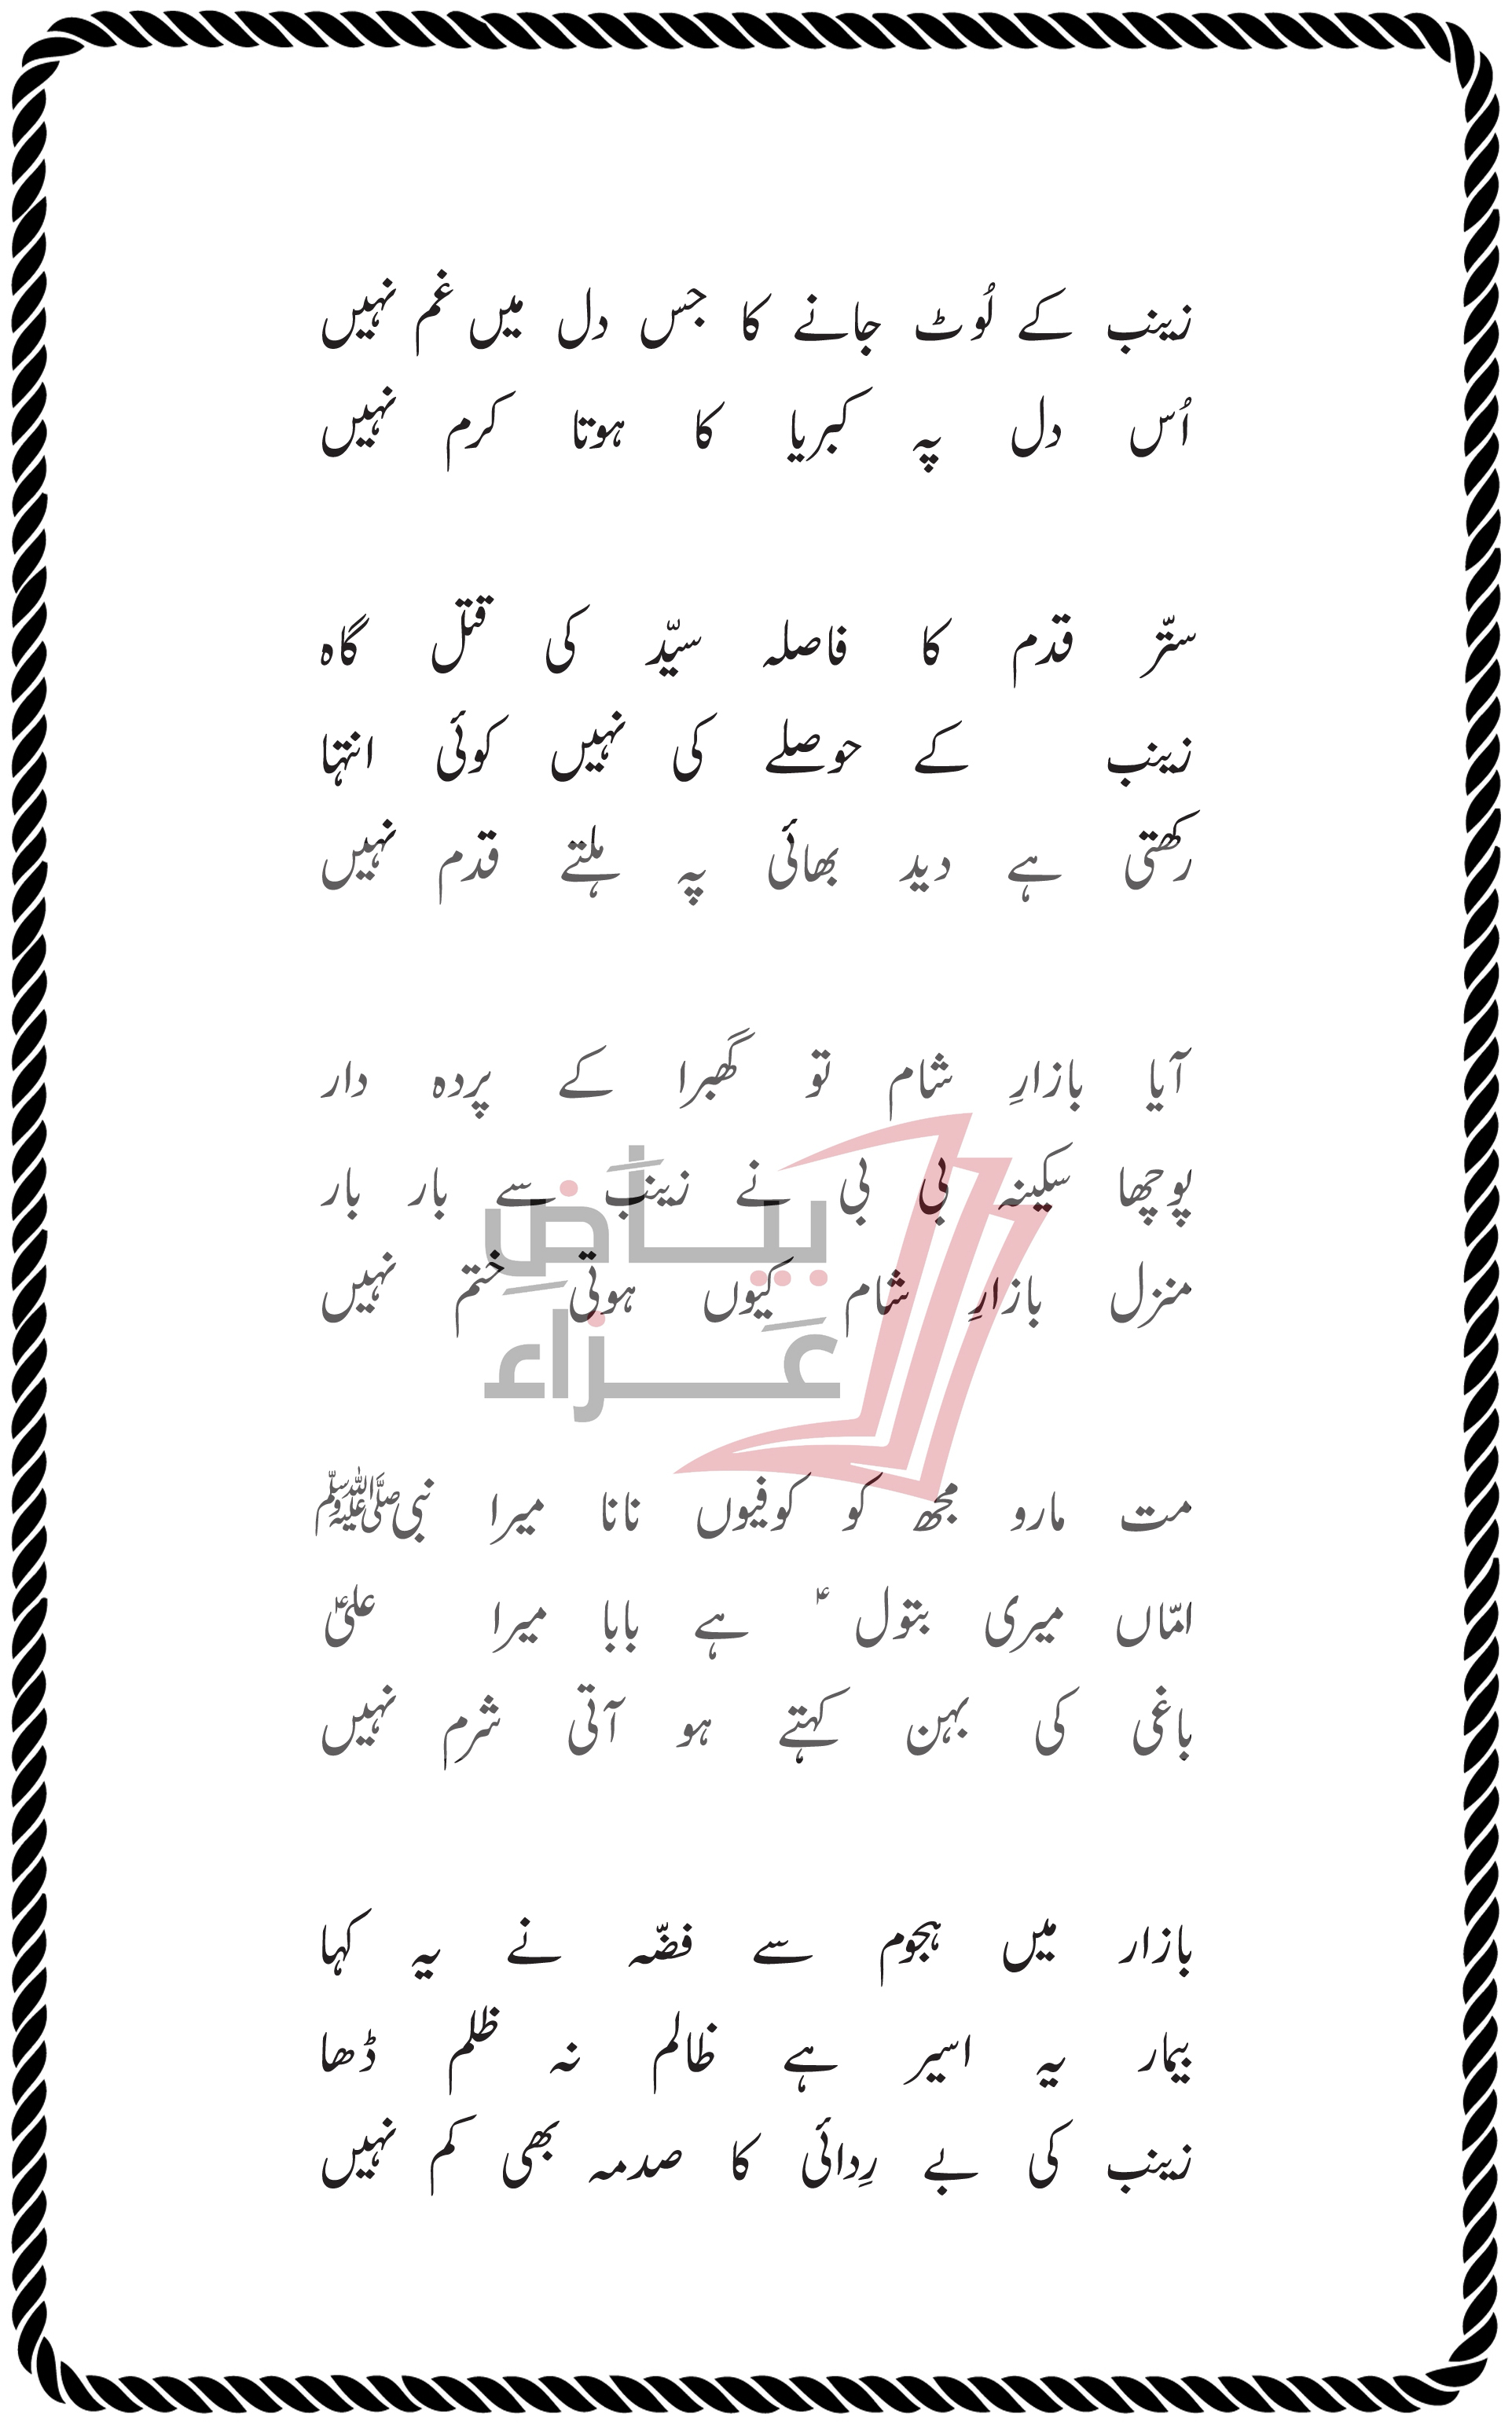 زینب کے لُوٹ جانے کا جس دل میں غم نہیں
اُس دل پہ کبریا کا ہوتا کرم نہیں
ستّر قدم کا فاصلہ سیّد کی قتل گاہ
زینب کے حوصلے کی نہیں کوئی انتہا
رکھتی ہے دید بھائی پہ ہلتے قدم نہیں
آیا بازارِ شام تو گھبرا کے پردہ دار
پوچھا سکینہ بی بی نے زینب سے بار بار
منزل بازارِ شام کیوں ہوتی ختم نہیں
بیاضِ
عَزاء
مت مارو مجھ کو کوفیوں نانا میرا نبیﷺ
امّاں میری بتول ؑ ہے بابا میرا علیؑ
باغی کی بہن کہتے ہو آتی شرم نہیں
بازار میں ہجوم سے فضّہ نے یہ کہا
بیمار یہ اسیر ہے ظالم نہ ظلم ڈھا
زینب کی بے رِدائی کا صدمہ بھی کم نہیں